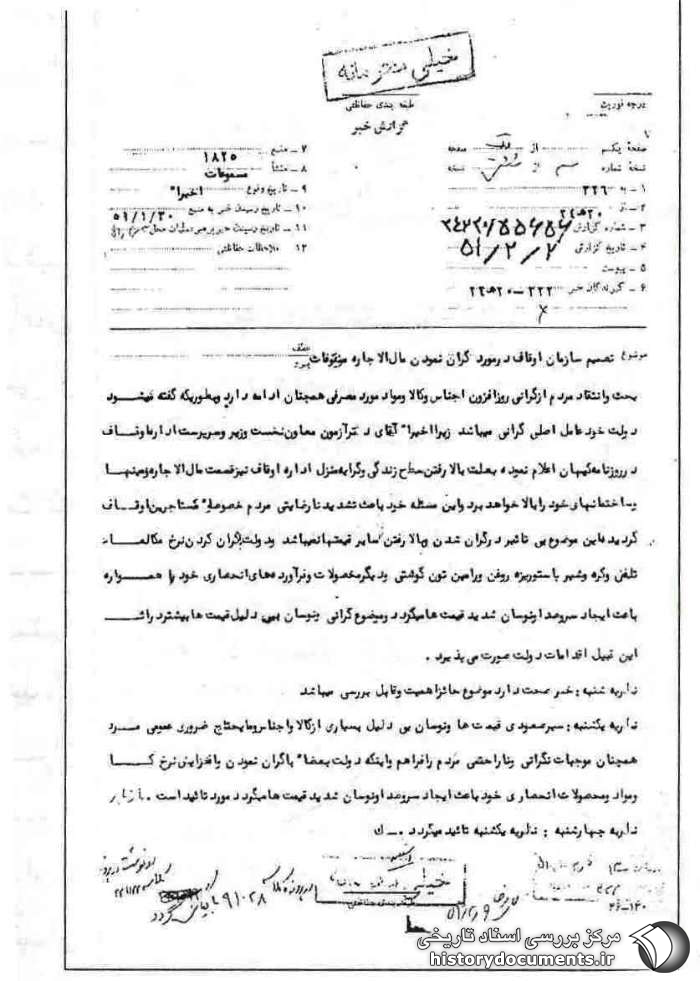 خیلی محرمانه
طبقه بندی حفاظتی
گزارش خبر
درجه فوریت
صفحه یکم از یک صفحه
نسخه شماره سه از شش نسخه
۱ ـ به ۳۲۶
۲ ـ از ۲۰ ه ۲۲
۳ ـ شماره گزارش
۴ ـ تاریخ گزارش ۵۱/۲/۲
۵ ـ پیوست
۶ ـ گیرندگان خبر ۳۲۲ ـ ۲۰ ه ۲۲
۷ ـ منبع ۱۸۲۵
۸ ـ منشأ مسموعات
۹ ـ تاریخ وقوع اخیرا"
۱۰ ـ تاریخ رسیدن خبر به منبع ۵۱/۱/۳۰
۱۱ ـ تاریخ رسیدن خبر به رهبر عملیات محل
۱۲ ـ ملاحظات حفاظتی
موضوع تصمیم سازمان اوقاف درمورد گران نمودن مال الاجاره موقوفات
بحث وانتقاد مردم ازگرانی روزافزون اجناس وکالا ومواد مورد مصرفی همچنان ادامه دارد وبطوریکه گفته میشود
دولت خود عامل اصلی گرانی میباشد زیرا اخیرا" آقای دکترآزمون معاون نخست وزیر وسرپرست اداره اوقاف
درروزنامه کیهان اعلام نموده بعلت بالا رفتن سطح زندگی وکرایه منزل اداره اوقاف نیز قسمت مال الاجاره زمینها
وساختمانهای خود رابالا خواهد برد واین مسئله خود باعث تشدید نارضایتی مردم خصوصا" مستاجرین اوقاف
گردیده واین موضوع بی تاثیر درگران شدن وبالا رفتن سایر قیمتها نمیباشد ودولت باگران کردن نرخ مکالمات
تلفن وکره وشیر پاستوریزه روغن ورامین تون گوشتی ودیگر محصولات وفرآورده های انحصاری خود را همواره
باعث ایجاد سروصدا ونوسان شدید قیمت ها میگردد وموضوع گرانی ونوسان بی دلیل قیمت ها بیشتر دراثر
این قبیل اقدامات دولت صورت می پذیرد .
نظریه شنبه : خبر صحت دارد موضوع حائز اهمیت وقابل بررسی میباشد
نظریه یکشنبه : سیر صعودی قیمت ها ونوسان بی دلیل بسیاری ازکالا واجناس ومایحتاج ضروری عمومی مردم
همچنان موجبات نگرانی وناراحتی مردم رافراهم واینکه دولت بعضا" باگران نمودن وافزایش نرخ کالا
ومواد ومحصولات انحصاری خود باعث ایجاد سروصدا ونوسان شدید قیمت ها میگردد مورد تائید است .
نظریه چهارشنبه : نظریه یکشنبه تائید میگردد . ـ ك
خیلی محرمانه
طبقه بندی حفاظتی
۹۱۰۲۸ بایگانی گردد
مرکز بررسی اسناد تاریخی
historydocuments.ir